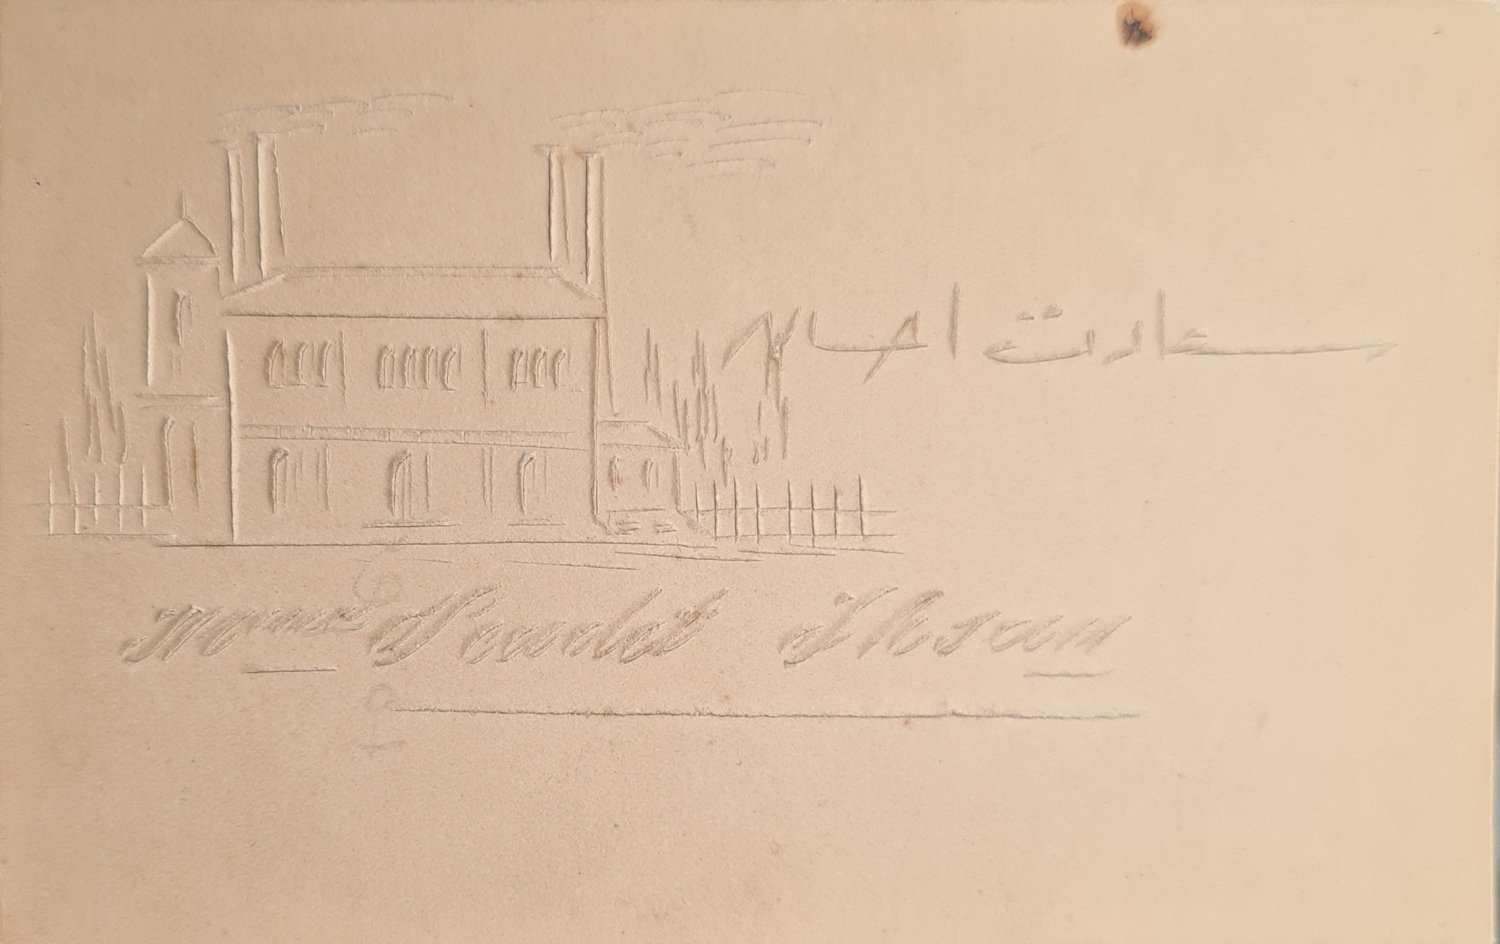 سعادت احسان
Mme Seadet Ihsan